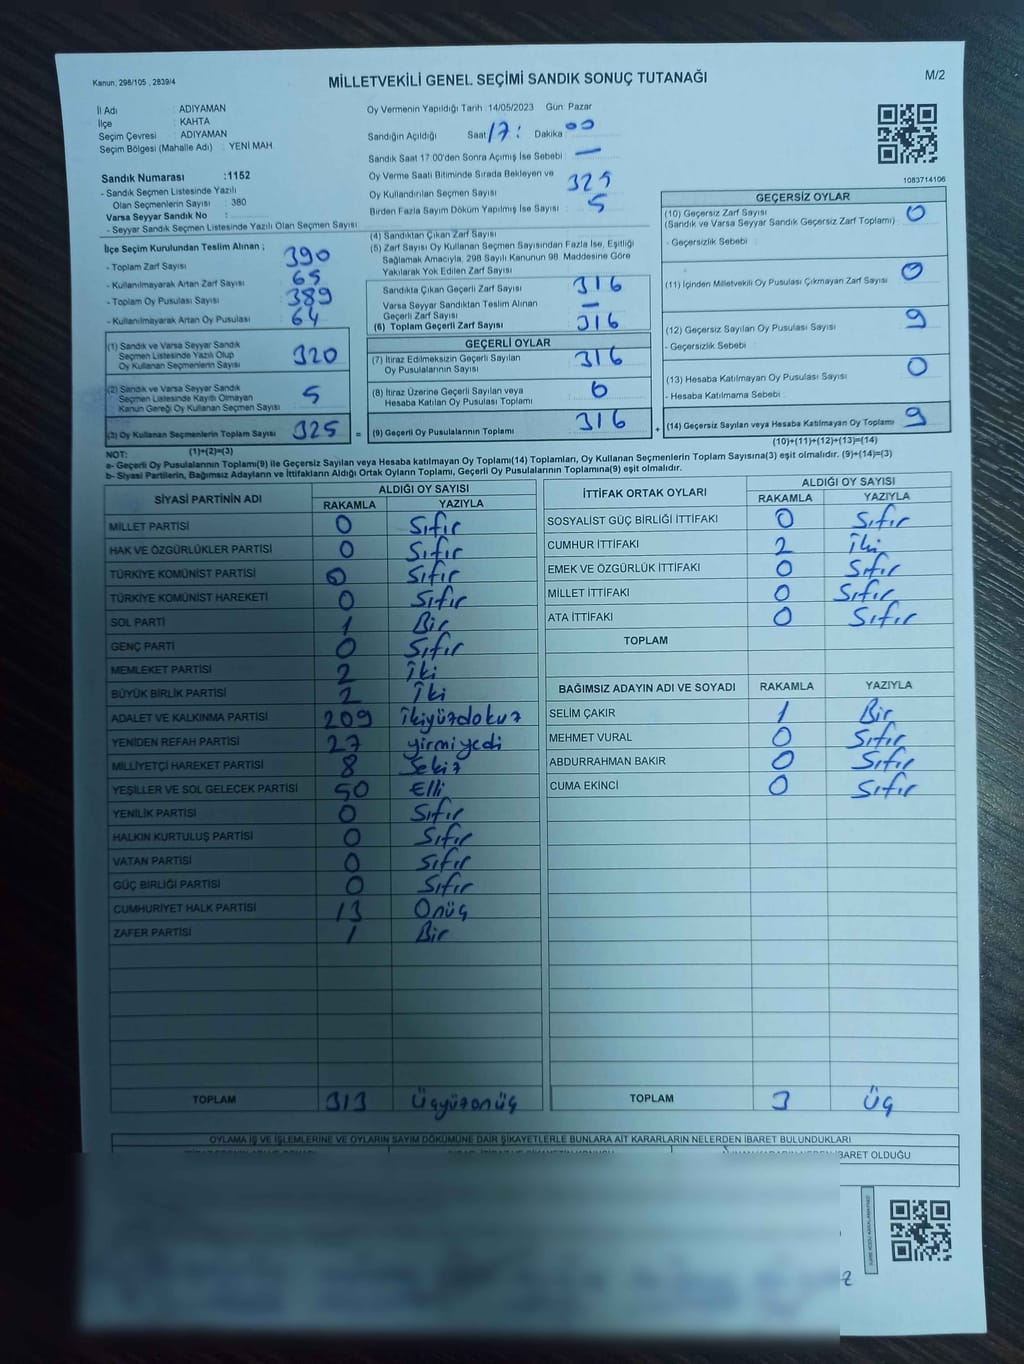 Kanun, 298/105 , 2839/4
MİLLETVEKİLİ GENEL SEÇİMİ SANDIK SONUÇ TUTANAĞI
M/2
İl Adı : ADIYAMAN
İlçe : KAHTA
Seçim Çevresi : ADIYAMAN
Seçim Bölgesi (Mahalle Adı) : YENİ MAH.
Sandık Numarası :1152
- Sandık Seçmen Listesinde Yazılı
Olan Seçmenlerin Sayısı : 380
Varsa Seyyar Sandık No :
- Seyyar Sandık Seçmen Listesinde Yazılı Olan Seçmen Sayısı:
Oy Vermenin Yapıldığı Tarih :14/05/2023 Gün Pazar
Sandığın Açıldığı Saat 17: Dakika 00
Sandık Saat 17.00'den Sonra Açımış İse Sebebi : —
Oy Verme Saati Bitiminde Sırada Bekleyen ve
Oy Kullandırılan Seçmen Sayısı 325
Birden Fazla Sayım Döküm Yapılmış İse Sayısı : 5
1083714106
İlçe Seçim Kurulundan Teslim Alınan ;
- Toplam Zarf Sayısı 390
- Kullanılmayarak Artan Zarf Sayısı 65
- Toplam Oy Pusulası Sayısı 389
- Kullanılmayarak Artan Oy Pusulası 64
(1) Sandık ve Varsa Seyyar Sandık
Seçmen Listesinde Yazılı Olup
Oy Kullanan Seçmenlerin Sayısı 320
(2) Sandık ve Varsa Seyyar Sandık
Seçmen Listesinde Kayıtlı Olmayan
Kanun Gereği Oy Kullanan Seçmen Sayısı 5
(3) Oy Kullanan Seçmenlerin Toplam Sayısı 325 =
(1)+(2)=(3)
(4) Sandıktan Çıkan Zarf Sayısı
(5) Zarf Sayısı Oy Kullanan Seçmen Sayısından Fazla İse, Eşitliği
Sağlamak Amacıyla, 298 Sayılı Kanunun 98. Maddesine Göre
Yakılarak Yok Edilen Zarf Sayısı
Sandıkta Çıkan Geçerli Zarf Sayısı 316
Varsa Seyyar Sandıktan Teslim Alınan
Geçerli Zarf Sayısı —
(6) Toplam Geçerli Zarf Sayısı 316
GEÇERLİ OYLAR
(7) İtiraz Edilmeksizin Geçerli Sayılan
Oy Pusulalarının Sayısı 316
(8) İtiraz Üzerine Geçerli Sayılan veya
Hesaba Katılan Oy Pusulası Toplamı 0
(9) Geçerli Oy Pusulalarının Toplamı 316 +
GEÇERSİZ OYLAR
(10) Geçersiz Zarf Sayısı 0
(Sandık ve Varsa Seyyar Sandık Geçersiz Zarf Toplamı) :
- Geçersizlik Sebebi :
(11) İçinden Milletvekili Oy Pusulası Çıkmayan Zarf Sayısı 0
(12) Geçersiz Sayılan Oy Pusulası Sayısı 9
- Geçersizlik Sebebi :
(13) Hesaba Katılmayan Oy Pusulası Sayısı 0
- Hesaba Katılmama Sebebi :
(14) Geçersiz Sayılan veya Hesaba Katılmayan Oy Toplamı 9
(10)+(11)+(12)+(13)=(14)
NOT:
a- Geçerli Oy Pusulalarının Toplamı(9) ile Geçersiz Sayılan veya Hesaba katılmayan Oy Toplamı(14) Toplamları, Oy Kullanan Seçmenlerin Toplam Sayısına(3) eşit olmalıdır. (9)+(14)=(3)
b- Siyasi Partilerin, Bağımsız Adayların ve İttifakların Aldığı Ortak Oyların Toplamı, Geçerli Oy Pusulalarının Toplamına(9) eşit olmalıdır.
SİYASİ PARTİNİN ADI ALDIĞI OY SAYISI
RAKAMLA YAZIYLA
MİLLET PARTİSİ 0 Sıfır
HAK VE ÖZGÜRLÜKLER PARTİSİ 0 Sıfır
TÜRKİYE KOMÜNİST PARTİSİ 0 Sıfır
TÜRKİYE KOMÜNİST HAREKETİ 0 Sıfır
SOL PARTİ 1 Bir
GENÇ PARTİ 0 Sıfır
MEMLEKET PARTİSİ 2 İki
BÜYÜK BİRLİK PARTİSİ 2 İki
ADALET VE KALKINMA PARTİSİ 209 İkiyüzdokuz
YENİDEN REFAH PARTİSİ 27 yirmiyedi
MİLLİYETÇİ HAREKET PARTİSİ 8 Sekiz
YEŞİLLER VE SOL GELECEK PARTİSİ 50 Elli
YENİLİK PARTİSİ 0 Sıfır
HALKIN KURTULUŞ PARTİSİ 0 Sıfır
VATAN PARTİSİ 0 Sıfır
GÜÇ BİRLİĞİ PARTİSİ 0 Sıfır
CUMHURİYET HALK PARTİSİ 13 Onüç
ZAFER PARTİSİ 1 Bir
TOPLAM 313 Üçyüzonüç
İTTİFAK ORTAK OYLARI ALDIĞI OY SAYISI
RAKAMLA YAZIYLA
SOSYALİST GÜÇ BİRLİĞİ İTTİFAKI 0 Sıfır
CUMHUR İTTİFAKI 2 İki
EMEK VE ÖZGÜRLÜK İTTİFAKI 0 Sıfır
MİLLET İTTİFAKI 0 Sıfır
ATA İTTİFAKI 0 Sıfır
TOPLAM
BAĞIMSIZ ADAYIN ADI VE SOYADI RAKAMLA YAZIYLA
SELİM ÇAKIR 1 Bir
MEHMET VURAL 0 Sıfır
ABDURRAHMAN BAKIR 0 Sıfır
CUMA EKİNCİ 0 Sıfır
TOPLAM 3 Üç
OYLAMA İŞ VE İŞLEMLERİNE VE OYLARIN SAYIM DÖKÜMÜNE DAİR ŞİKAYETLERLE BUNLARA AİT KARARLARIN NELERDEN İBARET BULUNDUKLARI
İBARET OLDUĞU